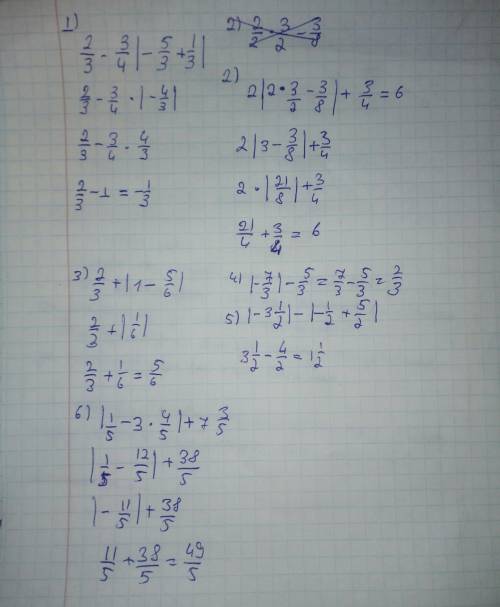 1)
2/3 - 3/4 |- 5/3 + 1/3|
2/3 - 3/4 · |- 4/3|
2/3 - 3/4 · 4/3
2/3 - 1 = - 1/3
2)
2)
2|2 · 3/2 - 3/8| + 3/4 = 6
2|3 - 3/8| + 3/4
2 · |21/8| + 3/4
21/4 + 3/4 = 6
3) 2/3 + |1 - 5/6|
2/3 + |1/6|
2/3 + 1/6 = 5/6
4) |- 7/3| - 5/3 = 7/3 - 5/3 = 2/3
5) |- 3 1/2| - |- 1/2 + 5/2|
3 1/2 - 4/2 = 1 1/2
6) |1/5 - 3 · 4/5| + 7 3/5
|1/5 - 12/5| + 38/5
|- 11/5| + 38/5
11/5 + 38/5 = 49/5